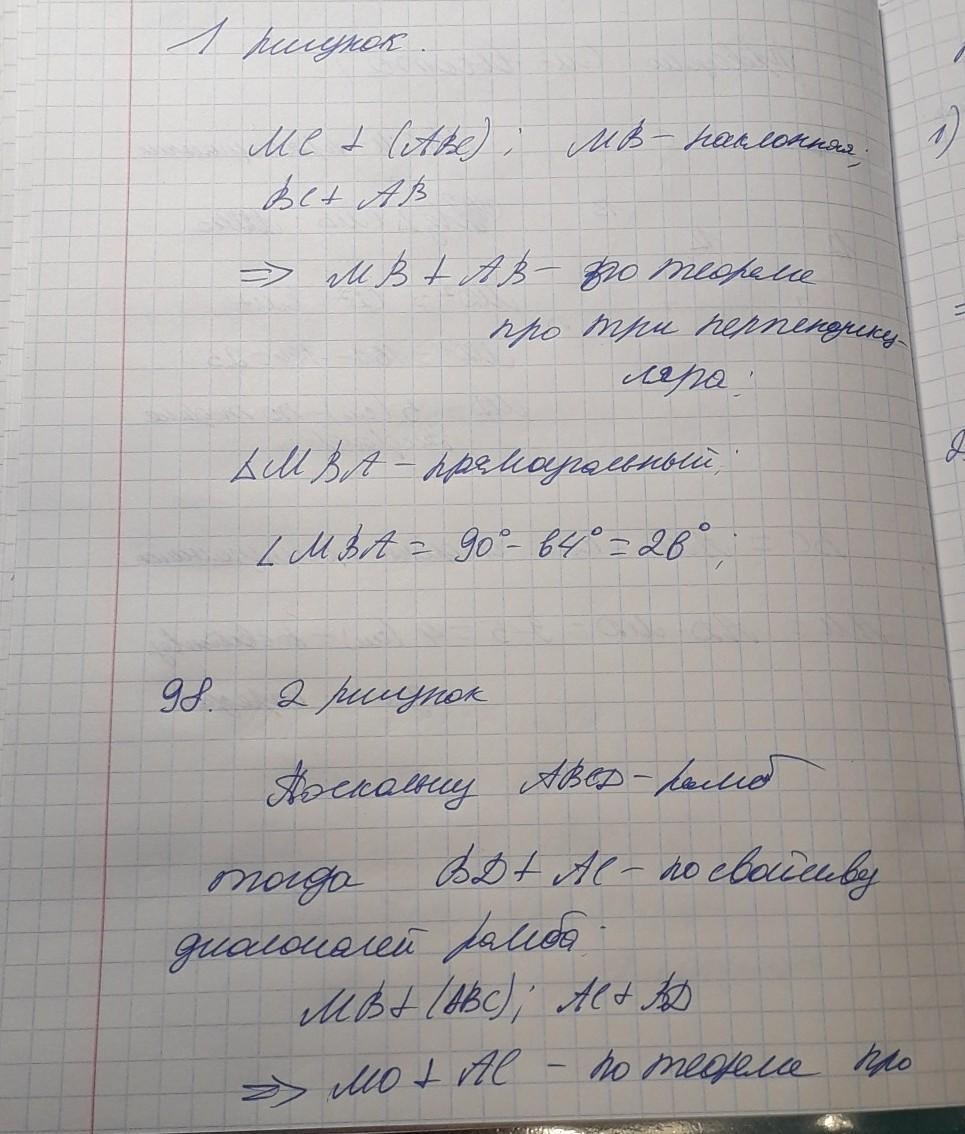 1 рисунок.
MC ⊥ (ABC); MB - наклонная;
BC ⊥ AB
⇒ MB ⊥ AB - по теореме
про три перпендику-
ляра:
△MBA - прямоугольный;
∠MBA = 90° - 64° = 26°;
98. 2 рисунок
Поскольку ABCD - ромб
тогда BD ⊥ AC - по свойству
диагоналей ромба:
MB ⊥ (ABC); AC ⊥ BD
⇒ MO ⊥ AC - по теореме про
1)